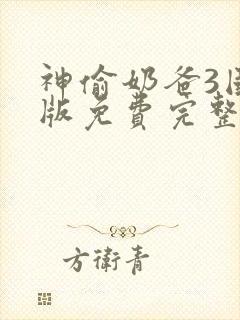 神偷奶爸3
版免费完整
方衛青